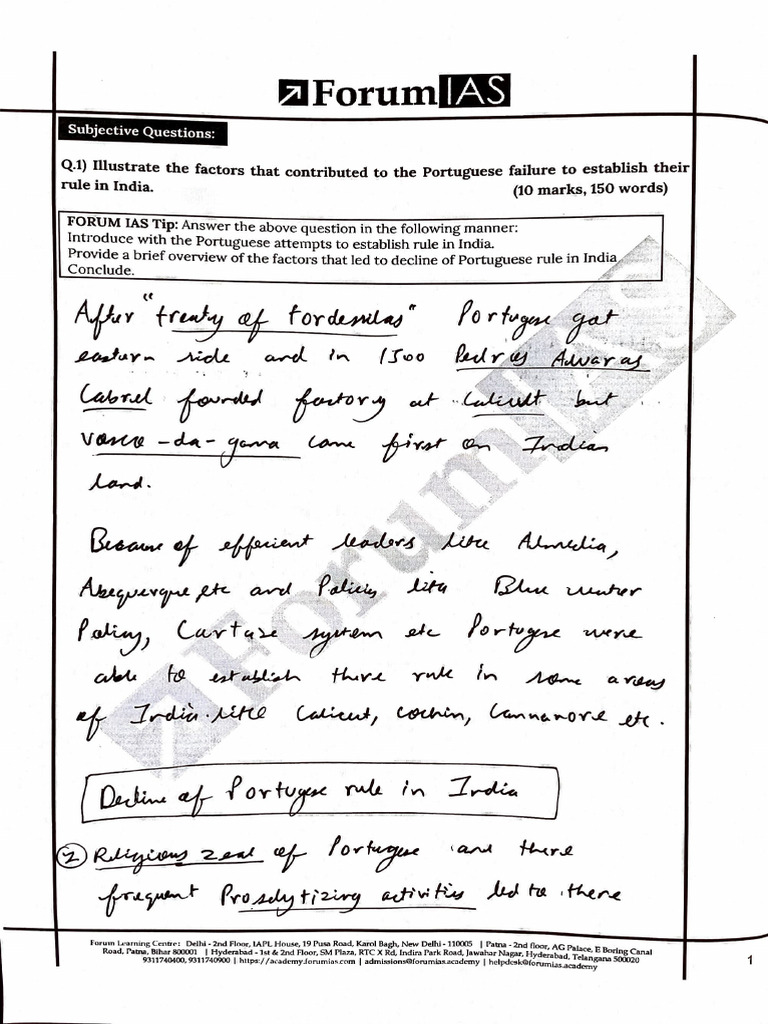 ForumIAS
Subjective Questions:
Q.1) Illustrate the factors that contributed to the Portuguese failure to establish their
rule in India. (10 marks, 150 words)
FORUM IAS Tip: Answer the above question in the following manner:
Introduce with the Portuguese attempts to establish rule in India.
Provide a brief overview of the factors that led to decline of Portuguese rule in India
Conclude.
After "treaty of tordesillas" Portugese got
eastern side and in 1500 Pedros Alvaras
Cabriel founded factory at Calicut but
vasco-da-gama came first on Indian
land.
Because of effecient leaders like Almedia,
Abequerque etc and Policies like Blue water
Policy, Cartaze system etc Portugese were
able to establish there rule in some areas
of India like Calicut, Cochin, Cannanore etc.
Decline of Portugese rule in India
1 Religious zeal of Portugese and there
frequent Proselytizing activities led to there
Forum Learning Centre: Delhi - 2nd Floor, IAPL House, 19 Pusa Road, Karol Bagh, New Delhi - 110005 | Patna - 2nd floor, AG Palace, E Boring Canal
Road, Patna, Bihar 800001 | Hyderabad - 1st & 2nd Floor, SM Plaza, RTC X Rd, Indira Park Road, Jawahar Nagar, Hyderabad, Telangana 500020
9311740400, 9311740900 | https://academy.forumias.com | admissions@forumias.academy | helpdesk@forumias.academy
1
ForumIAS